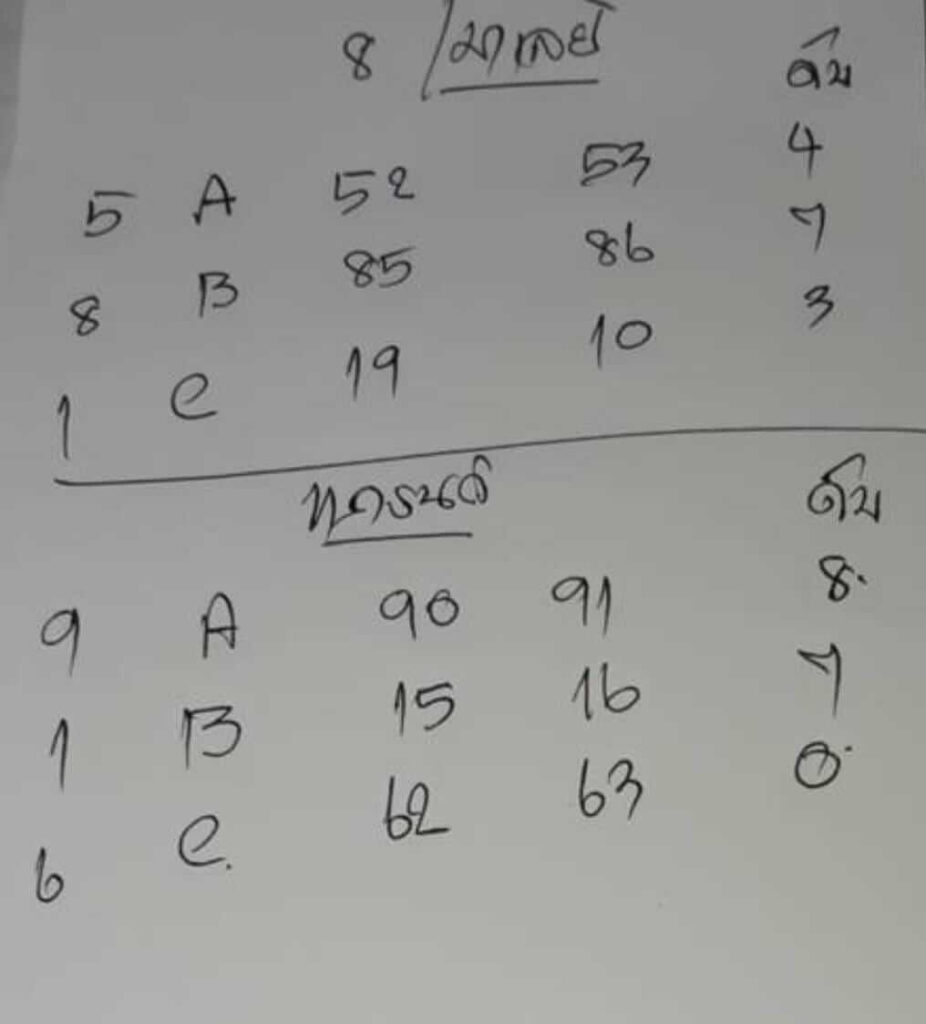 8 / มาเลย์ ดับ
5 A 52 53 4
8 B 85 86 7
1 C 19 10 3
ดับ
9 A 90 91 8.
1 B 15 16 7
6 C. 62 63 0.